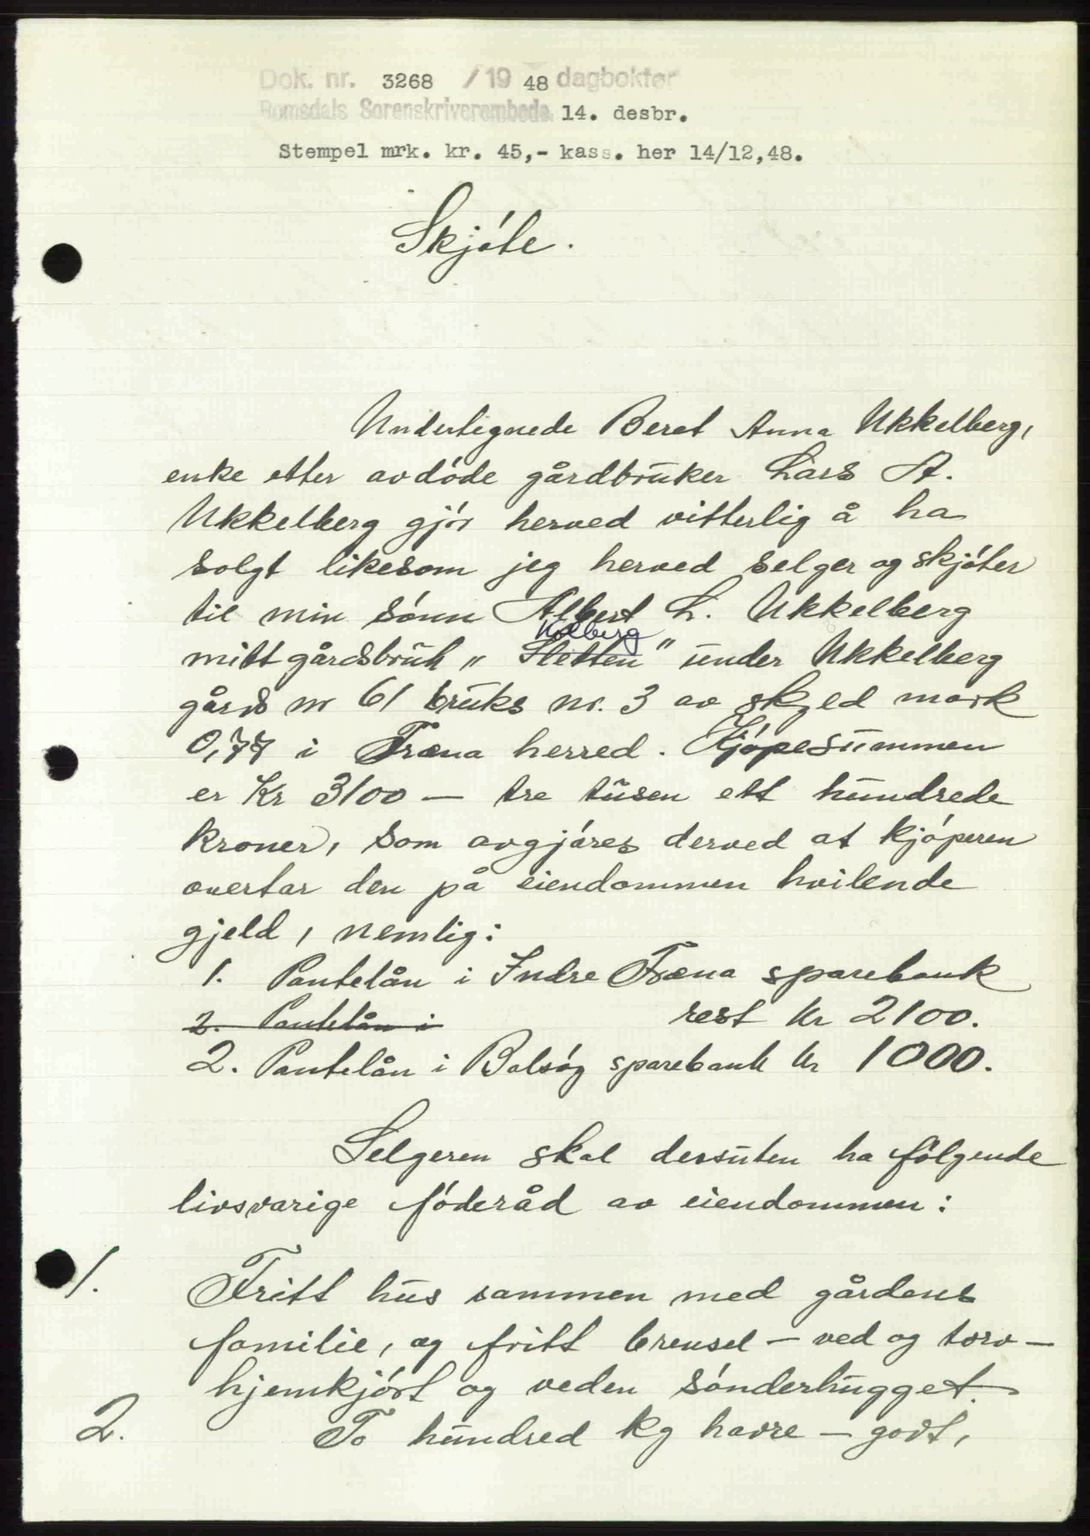 Dok. nr. 3268 / 19 48 dagboktør
Romsdals Sorenskriverembede 14. desbr.
Stempel mrk. kr. 45,- kass. her 14/12,48.
Skjóte.
Undertegnede Beret Anna Ukkelberg,
enke etter avdóde gårdbruker Lars A.
Ukkelberg gjór herved vitterlig å ha
solgt likesom jeg herved selger og skjóter
til min sónn Albert L. Ukkelberg
Kolberg
mitt gårdsbruk „ Sletten " under Ukkelberg
gårds nr 61 bruks nr. 3 av skyld mark
0,77 i Fræna herred. Kjópesummen
er Kr 3100 — tre tusen ett hundrede
kroner, som avgjóres derved at kjóperen
overtar den på eiendommen hvilende
gjeld, nemlig:
1. Pantelån i Indre Fræna sparebank
2. Pantelån i rest kr 2100.
2. Pantelån i Bolsóy sparebank kr 1000.
Selgeren skal dersuten ha fólgende
livsvarige fóderåd av eiendommen:
1. Fritt hus sammen med gårdens
familie, og fritt brensel — ved og torv —
hjemkjórt og veden sónderhugget.
2. To hundred kg havre — godt,